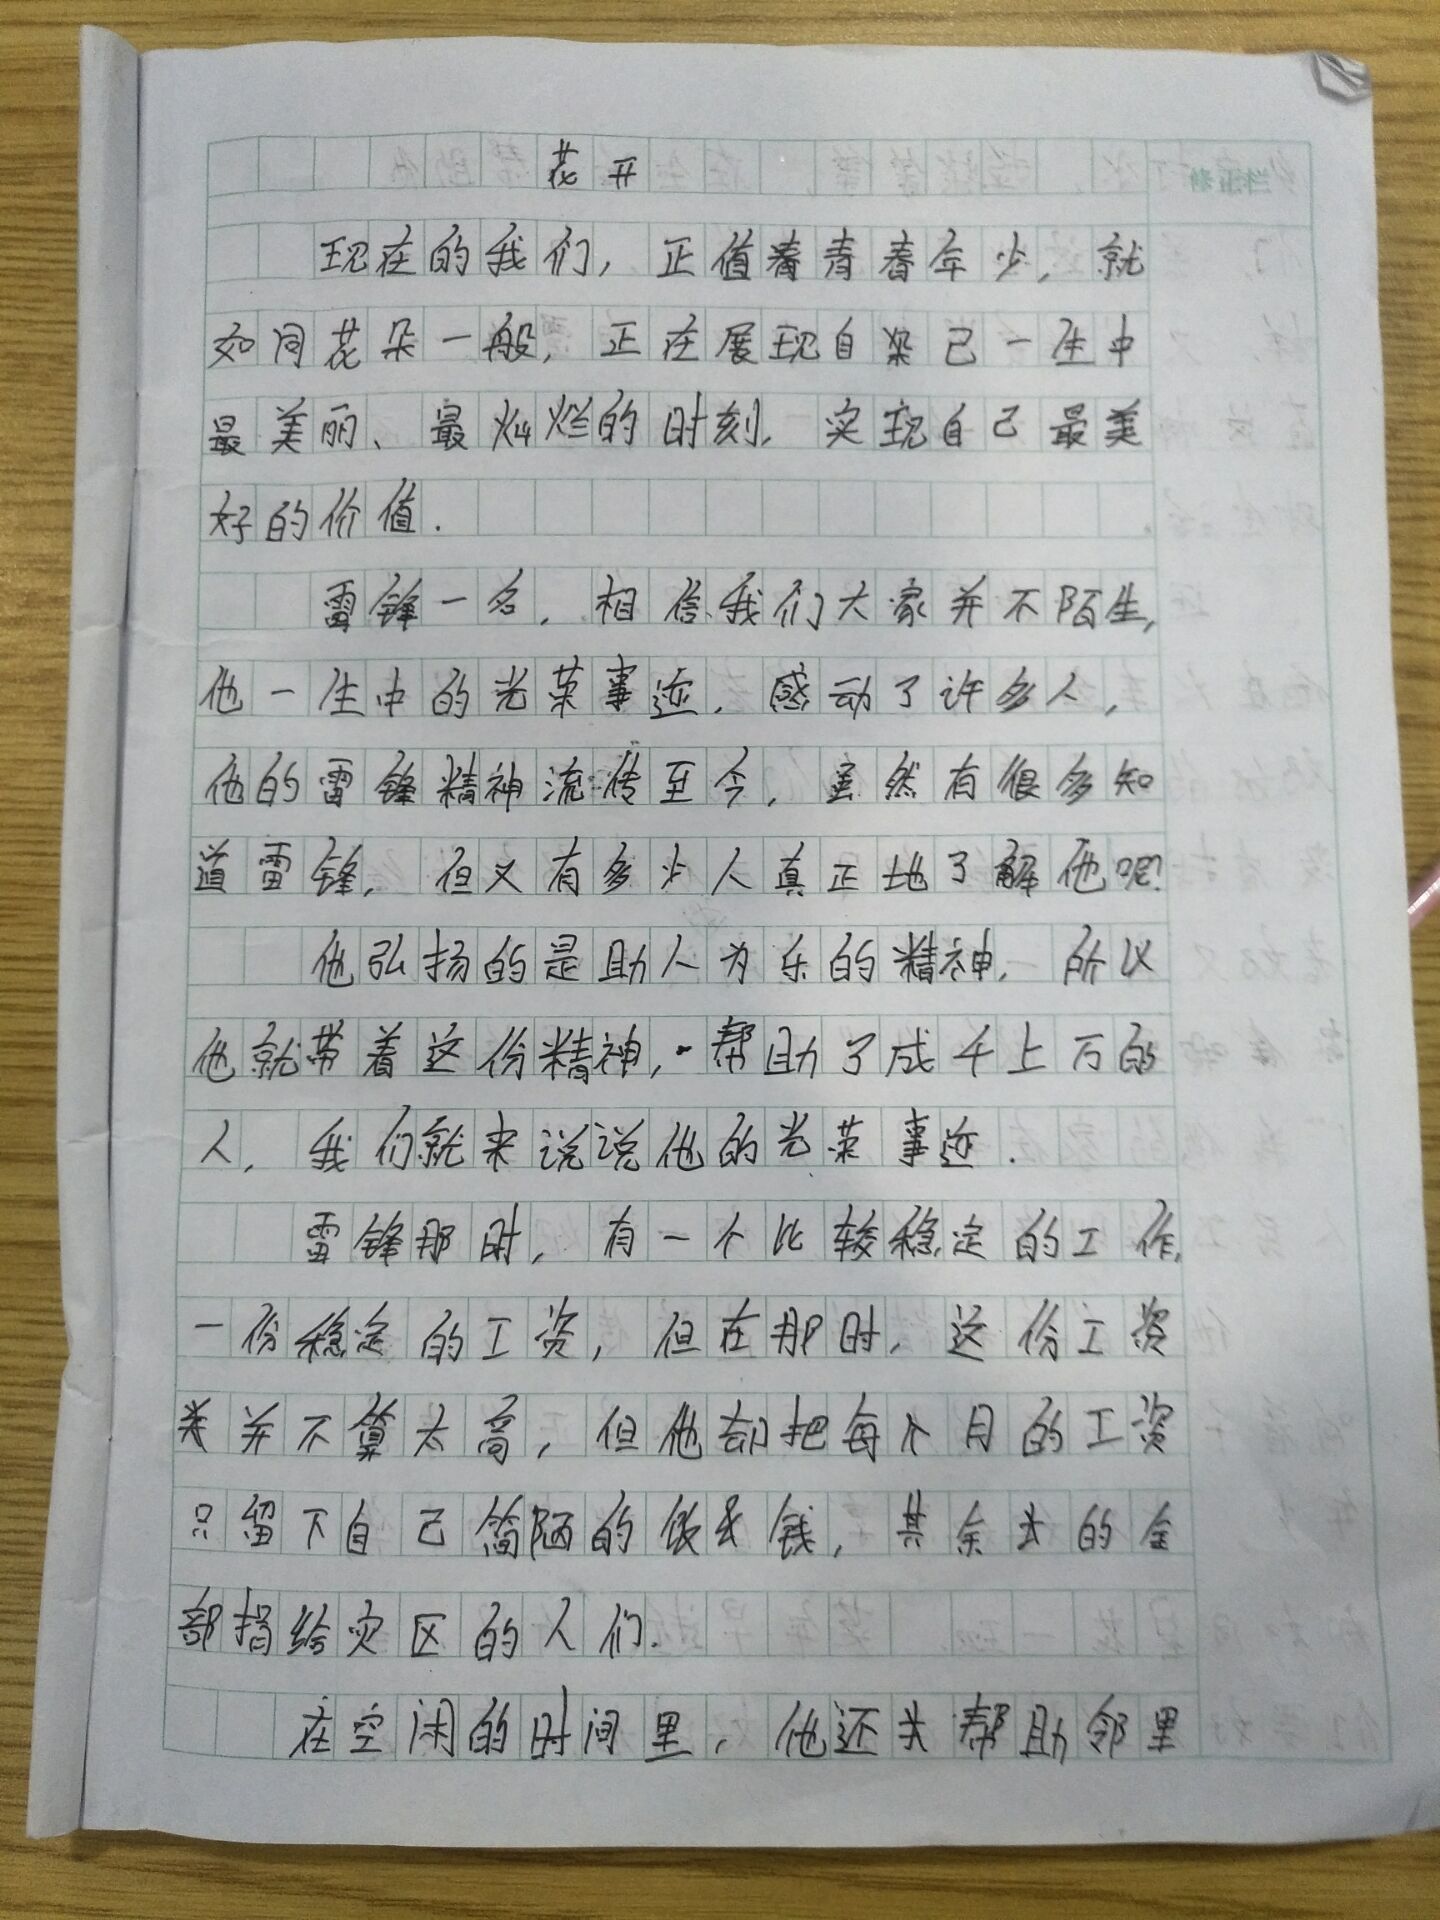 花开
修正栏
现在的我们，正值着青春年少，就
如同花朵一般，正在展现自己一生中
最美丽、最灿烂的时刻，实现自己最美
好的价值.
雷锋一名，相信我们大家并不陌生，
他一生中的光荣事迹，感动了许多人，
他的雷锋精神流传至今，虽然有很多知
道雷锋，但又有多少人真正地了解他呢？
他弘扬的是助人为乐的精神，所以
他就带着这份精神，帮助了成千上万的
人，我们就来说说他的光荣事迹.
雷锋那时，有一个比较稳定的工作，
一份稳定的工资，但在那时，这份工资
并不算太高，但他却把每个月的工资
只留下自己简陋的饭钱，其余的全
部捐给灾区的人们.
在空闲的时间里，他还去帮助邻里